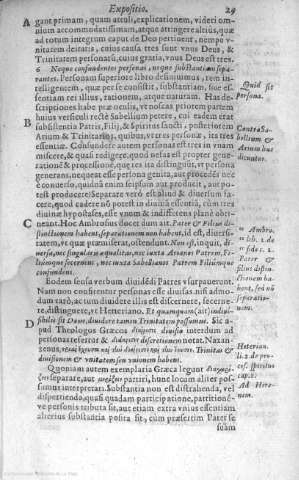 Expositio. 29
A gant primam, quam attuli, explicationem, videri omnium accommodatissimam, atque attingere alteras, quæ
ad totum integrum caput de Deo pertinent, nempe vnitatem
deitatis, cuius causa tres sunt vnus Deus, &
Trinitatem personarũ, cuius gratia, vnus Deus est tres.
6 Neque confundentes personas, neque substantiam separantes.
Personam superiore libro definiuimus, rem intelligentem,
quæ per se consistit, substantiam, siue essentiam
rei illius, rationem, atque naturam. Has descriptiones
habe præ oculis, vt noscas priorem partem
B huius versiculi recte Sabellium petere, cui eadem erat
substistentia Patris, Filij, & Spiritus sancti, posteriorem
Arium & Trinitarios, quibus, vt tres personæ, ita tres
essentiæ. Confundere autem personas est tres in vnam
miscere, & quasi redigere, quod nefas est propter generationẽ
& processionẽ, quæ tres ita distinguit, vt persona
generans, nequeat esse persona genita, aut procedẽs nec
è conuerso, quidnã enim seipsum aut producit, aut potest
producere? Separare verò est aliud & diuersum facere,
quod cadere nõ potest in diuinã essentiã, cum tres
diuinæ hypostases, ese vnum & indifferens planè obtineant.
C Hoc Ambrosius docet dum ait. Pater & Filius distinctionem
habent, separationem non habent, id est, diuersitatem,
vt quæ præmiserat, ostendunt. Non est, inquit, diuersa,
nec singularis æqualitas, nec iuxta Arianos Patrem, Filiumque
secernimus, nec iuxta Sabellianos Patrem Filiumque
confundimus.
Eodem sensu verbum diuidẽdi Patres vsurpauerunt.
Nam non confiteatur personas esse diuisas, nisi admodum
rarò, ac tum diuidere illis est discernere, secernere,
distinguere, vt Heteriano. Et quamquam (ait) indiuisibilis
sit Deus, diuidere tamen Trinitatem possumus. Sic apud
D Theologus Græcos διαίρεσις diuisio interdum ad
personas refertur & διάκρισις discretionem notat.
Trinitas &
diuisionem & vnitatem seu vnionem habens.
Quoniam autem exemplaria Græca legunt
separare, aut partiri, hunc locum aliter possumus
interpretari. Substantia non est distrahenda, vel
dispertiendo, quasi quædam participatione, partitionève
personis tributa sit, aut etiam extra vnius essentiam
alterius substantia posita sit, cum præsertim Pater se
suam
Quid sit
Persona.
Contra Sabellium
&
Arium hæc
dicuntur.
Ambro.
lib. 1. de
fide c. 1.
Pater &
filius distinctionem
habent,
sed nõ
separationem.
Heterian.
li. 2. de processi.
spiritus
cap. 1.